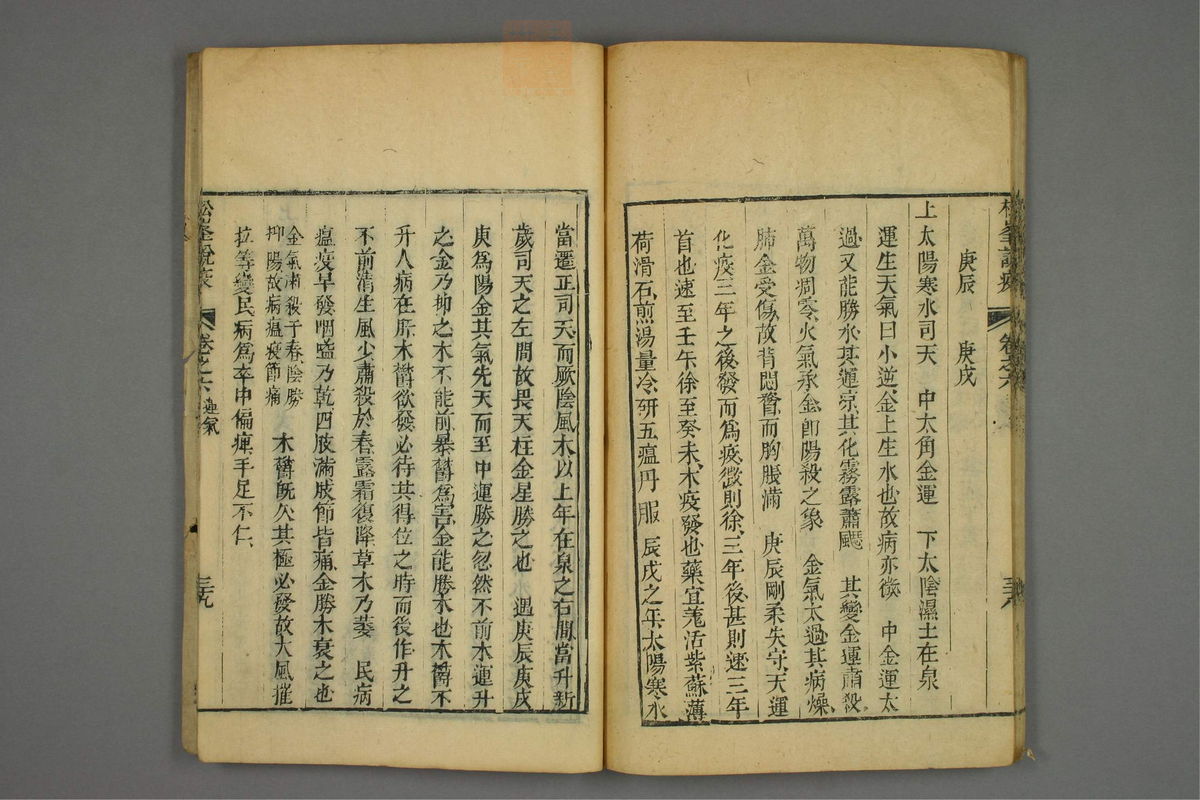 松峯說疫 卷之六 三八
庚辰 庚戌
上太陽寒水司天 中太角金運 下太陰濕土在泉
運生天氣曰小逆金上生水也故病亦微 中金運太
過又能勝木其運凉其化霧露蕭飋 其變金運肅殺
萬物凋零火氣承金卽陽殺之象 金氣太過其病燥
肺金受傷故背悶瞀而胸脹滿 庚辰剛柔失守天運
化疫三年之後發而爲疫微則徐三年後甚則速三年
首也速至壬午徐至癸未木疫發也藥宜羗活紫蘇薄
荷滑石煎湯量冷硏五瘟丹服 辰戌之年太陽寒水
當遷正司天而厥陰風木以上年在泉之右間當升新
歲司天之左間故畏天柱金星勝之也 遇庚辰庚戌
庚爲陽金其氣先天而至中運勝之忽然不前木運升
之金乃抑之木不能前暴鬱爲害金能勝木也木鬱不
升人病在肝木鬱欲發必待其得位之時而後作升之
不前淸生風少肅殺於春露霜復降草木乃萎 民病
瘟疫早發咽嗌乃乾四肢滿肢節皆痛金勝木衰之也
金氣肅殺于春陰勝
抑陽故病瘟疫節痛
木鬱旣久其極必發故大風摧
拉等變民病爲卒中偏痺手足不仁
松峯說疫 卷之六 運氣 三九